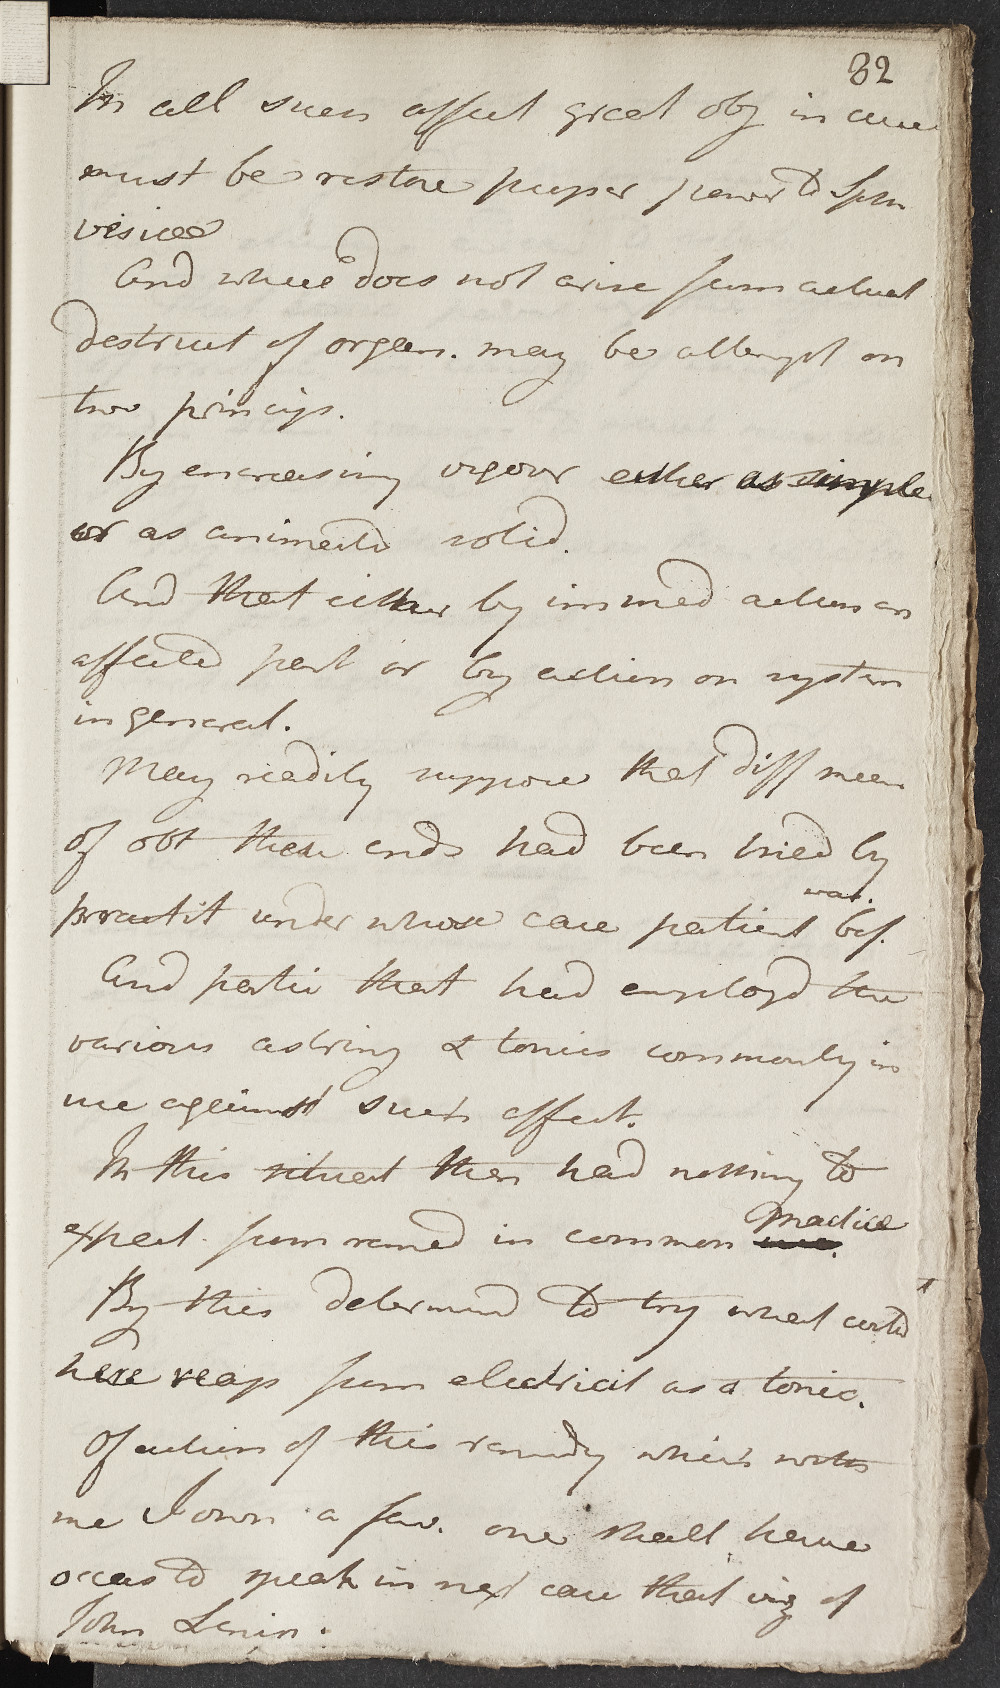 32
In all such affect great obj in cure
must be restore proper power to Sphin
vesicae
And where does not arise from actual
destruct of organ. may be attempt on
two princips.
By encreasing vigour either as simple
or as animated solid.
And that either by immed action on
affected part or by action on system
in general.
May readily suppose that diff mean
of obt these ends had been tried by
practit under whose care patient was bef.
And partic that had employd the
various astring & tonics commonly in
use against such affect.
In this situat then had nothing to
expect from remed in common practice
By this determind to try what could
here reap from electricit as a tonic.
Of action of this remedy which with
me I own a fav. one shall have
occas to speak in next case that viz of
John